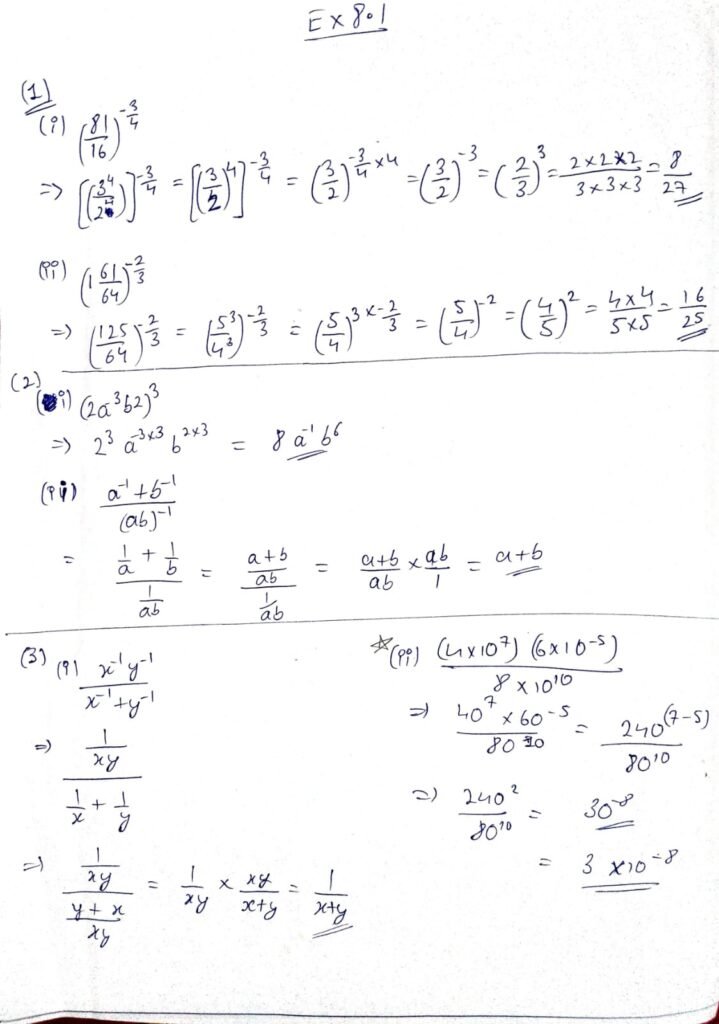 Ex 8.1
(1)
(i) (81/16)^(-3/4)
=> [(3^4/2^4)]^(-3/4) = [(3/2)^4]^(-3/4) = (3/2)^(-3/4 × 4) = (3/2)^(-3) = (2/3)^3 = (2×2×2)/(3×3×3) = 8/27
(ii) (1 61/64)^(-2/3)
=> (125/64)^(-2/3) = (5^3/4^3)^(-2/3) = (5/4)^(3×-2/3) = (5/4)^(-2) = (4/5)^2 = (4×4)/(5×5) = 16/25
(2)
(i) (2a^-3b2)^3
=> 2^3 a^(-3×3) b^(2×3) = 8 a^-1 b^6
(ii) (a^-1 + b^-1)/(ab)^-1
= (1/a + 1/b)/(1/ab) = ((a+b)/ab)/(1/ab) = (a+b)/ab × ab/1 = a+b
(3) (i) (x^-1 y^-1)/(x^-1 + y^-1)
=> (1/xy)/(1/x + 1/y)
=> (1/xy)/((y+x)/xy) = 1/xy × xy/(x+y) = 1/(x+y)
☆(ii) ((4×10^7) (6×10^-5))/(8×10^10)
=> (40^7 × 60^-5)/80^10 = 240^(7-5)/80^10
=> 240^2/80^10 = 30^-8
= 3 × 10^-8